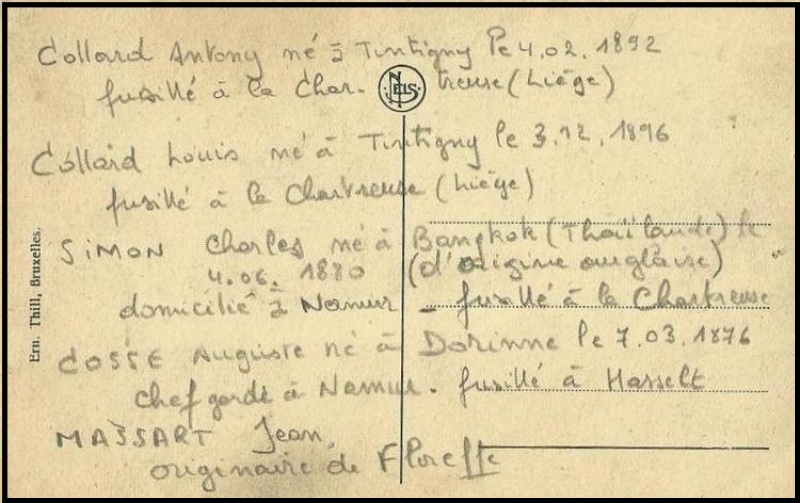 Collard Antony né à Tintigny le 4.02.1892
fusillé à la Char. NELS treuse (Liége)
Collard Louis né à Tintigny le 3.12.1896
fusillé à la Chartreuse (Liége)
SIMON Charles né à Bangkok (Thaïlande) le
4.06.1880 (d'origine anglaise)
domicilié à Namur - fusillé à la Chartreuse
COSSE Auguste né à Dorinne le 7.03.1876
chef garde à Namur. fusillé à Hasselt
MASSART Jean,
originaire de Floreffe
Ern. Thill, Bruxelles.